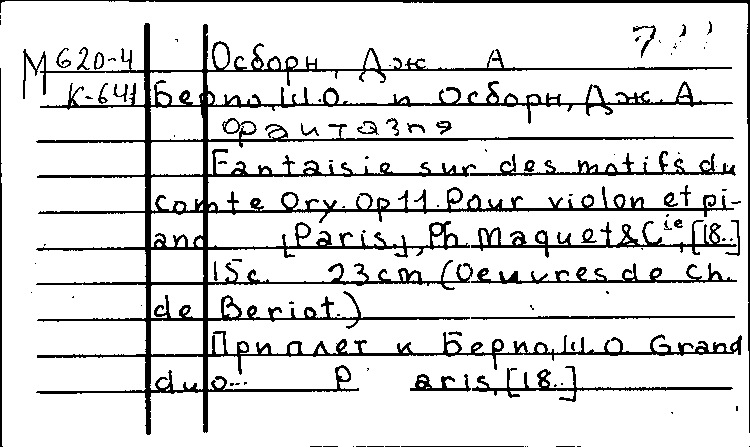 М 620-4 Осборн, Дж А
К-641 Берио, Ш.О. и Осборн, Дж. А.
Фантазия
Fantaisie sur des motifs du
comte Ory. Op 11. Pour violon et pi-
ano [Paris], Ph. Maquet & Cie, [18..]
15c. 23cm (Oeuvres de Ch.
de Beriot.)
Приплет к Берио, Ш.О. Grand
duo... P aris, [18..]